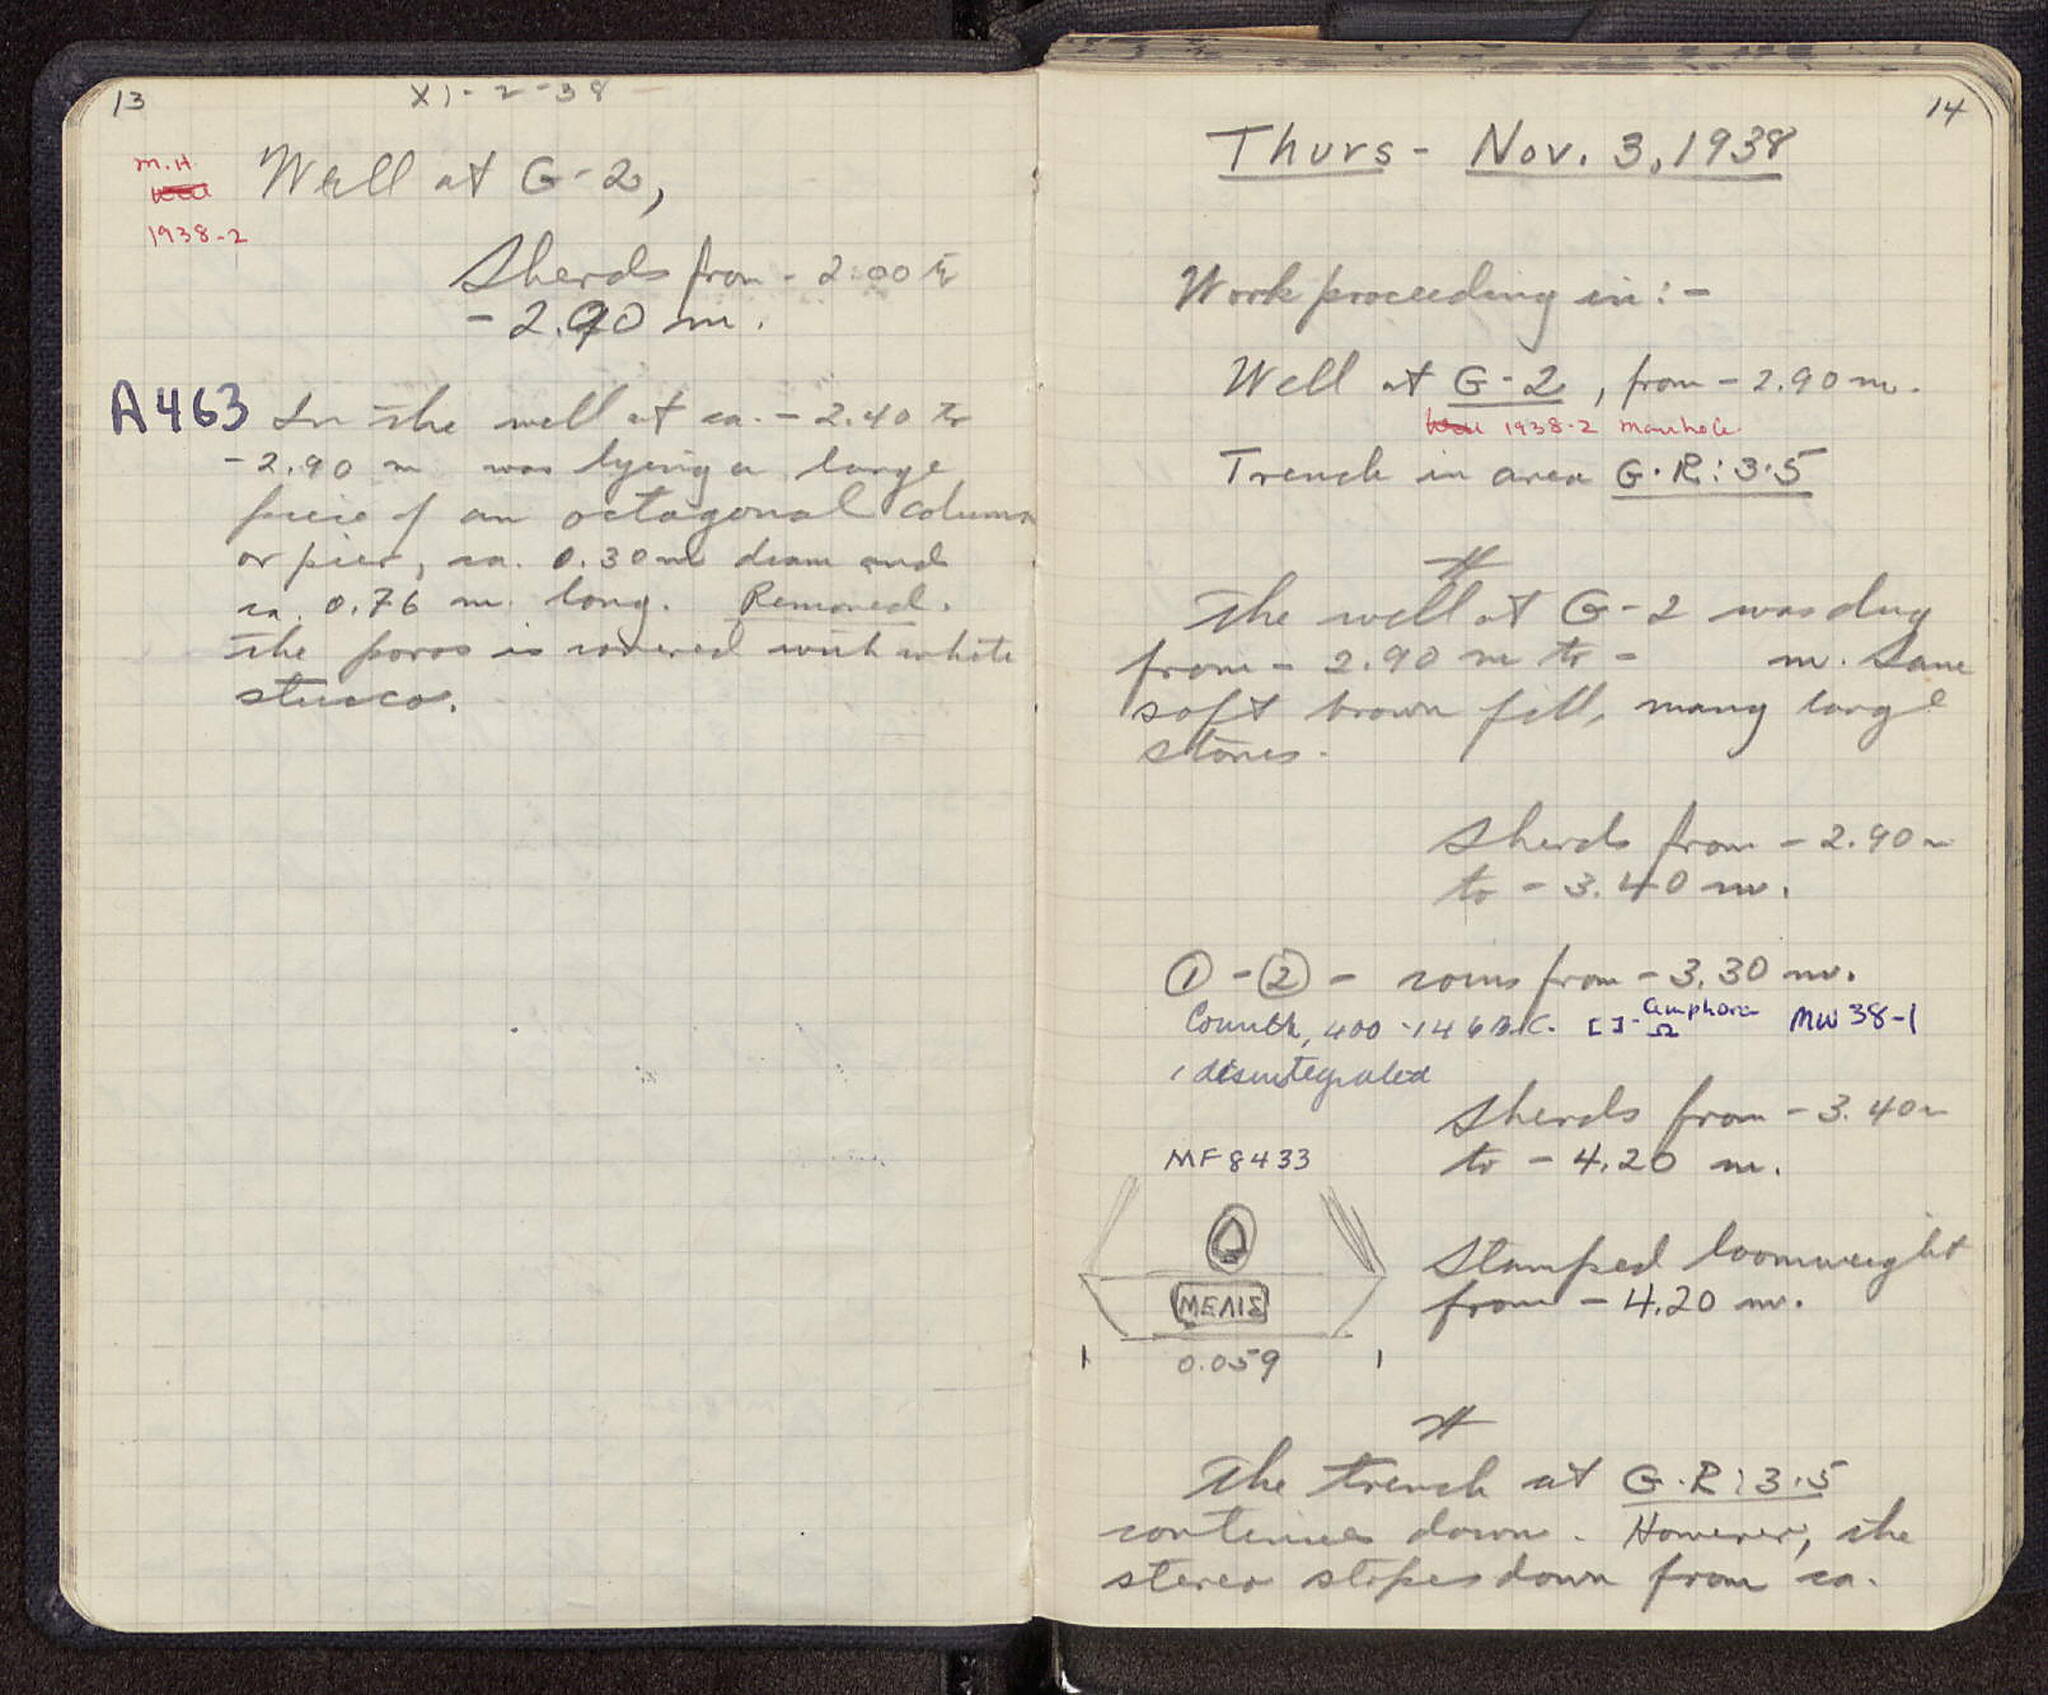 13
XI-2-38
M.H
1938-2
Well at G-2,
Sherds from - 2.00 to
- 2.90 m.
A463
In the well at ca. - 2.40 to
- 2.90 m was lying a large
piece of an octagonal column
or pier, ca. 0.30 m diam and
ca. 0.76 m. long. Removed.
The poros is covered with white
stucco.
14
Thurs - Nov. 3, 1938
Work proceeding in: -
Well at G-2, from - 2.90 m.
1938-2 Manhole
Trench in area G·R:3·5
The well at G-2 was dug
from - 2.90 m to - m. Same
soft brown fill, many large
stones.
Sherds from - 2.90 m
to - 3.40 m.
① - ② - coins from - 3.30 m.
Corinth, 400-146 B.C. [ ]- amphora Ω MW 38-1
1 disintegrated
Sherds from - 3.40 m
to - 4.20 m.
MF 8433
Stamped loomweight
from - 4.20 m.
ΜΕΛΙΣ
0.059
The trench at G·R:3·5
continues down. However, the
stereo slopes down from ca.